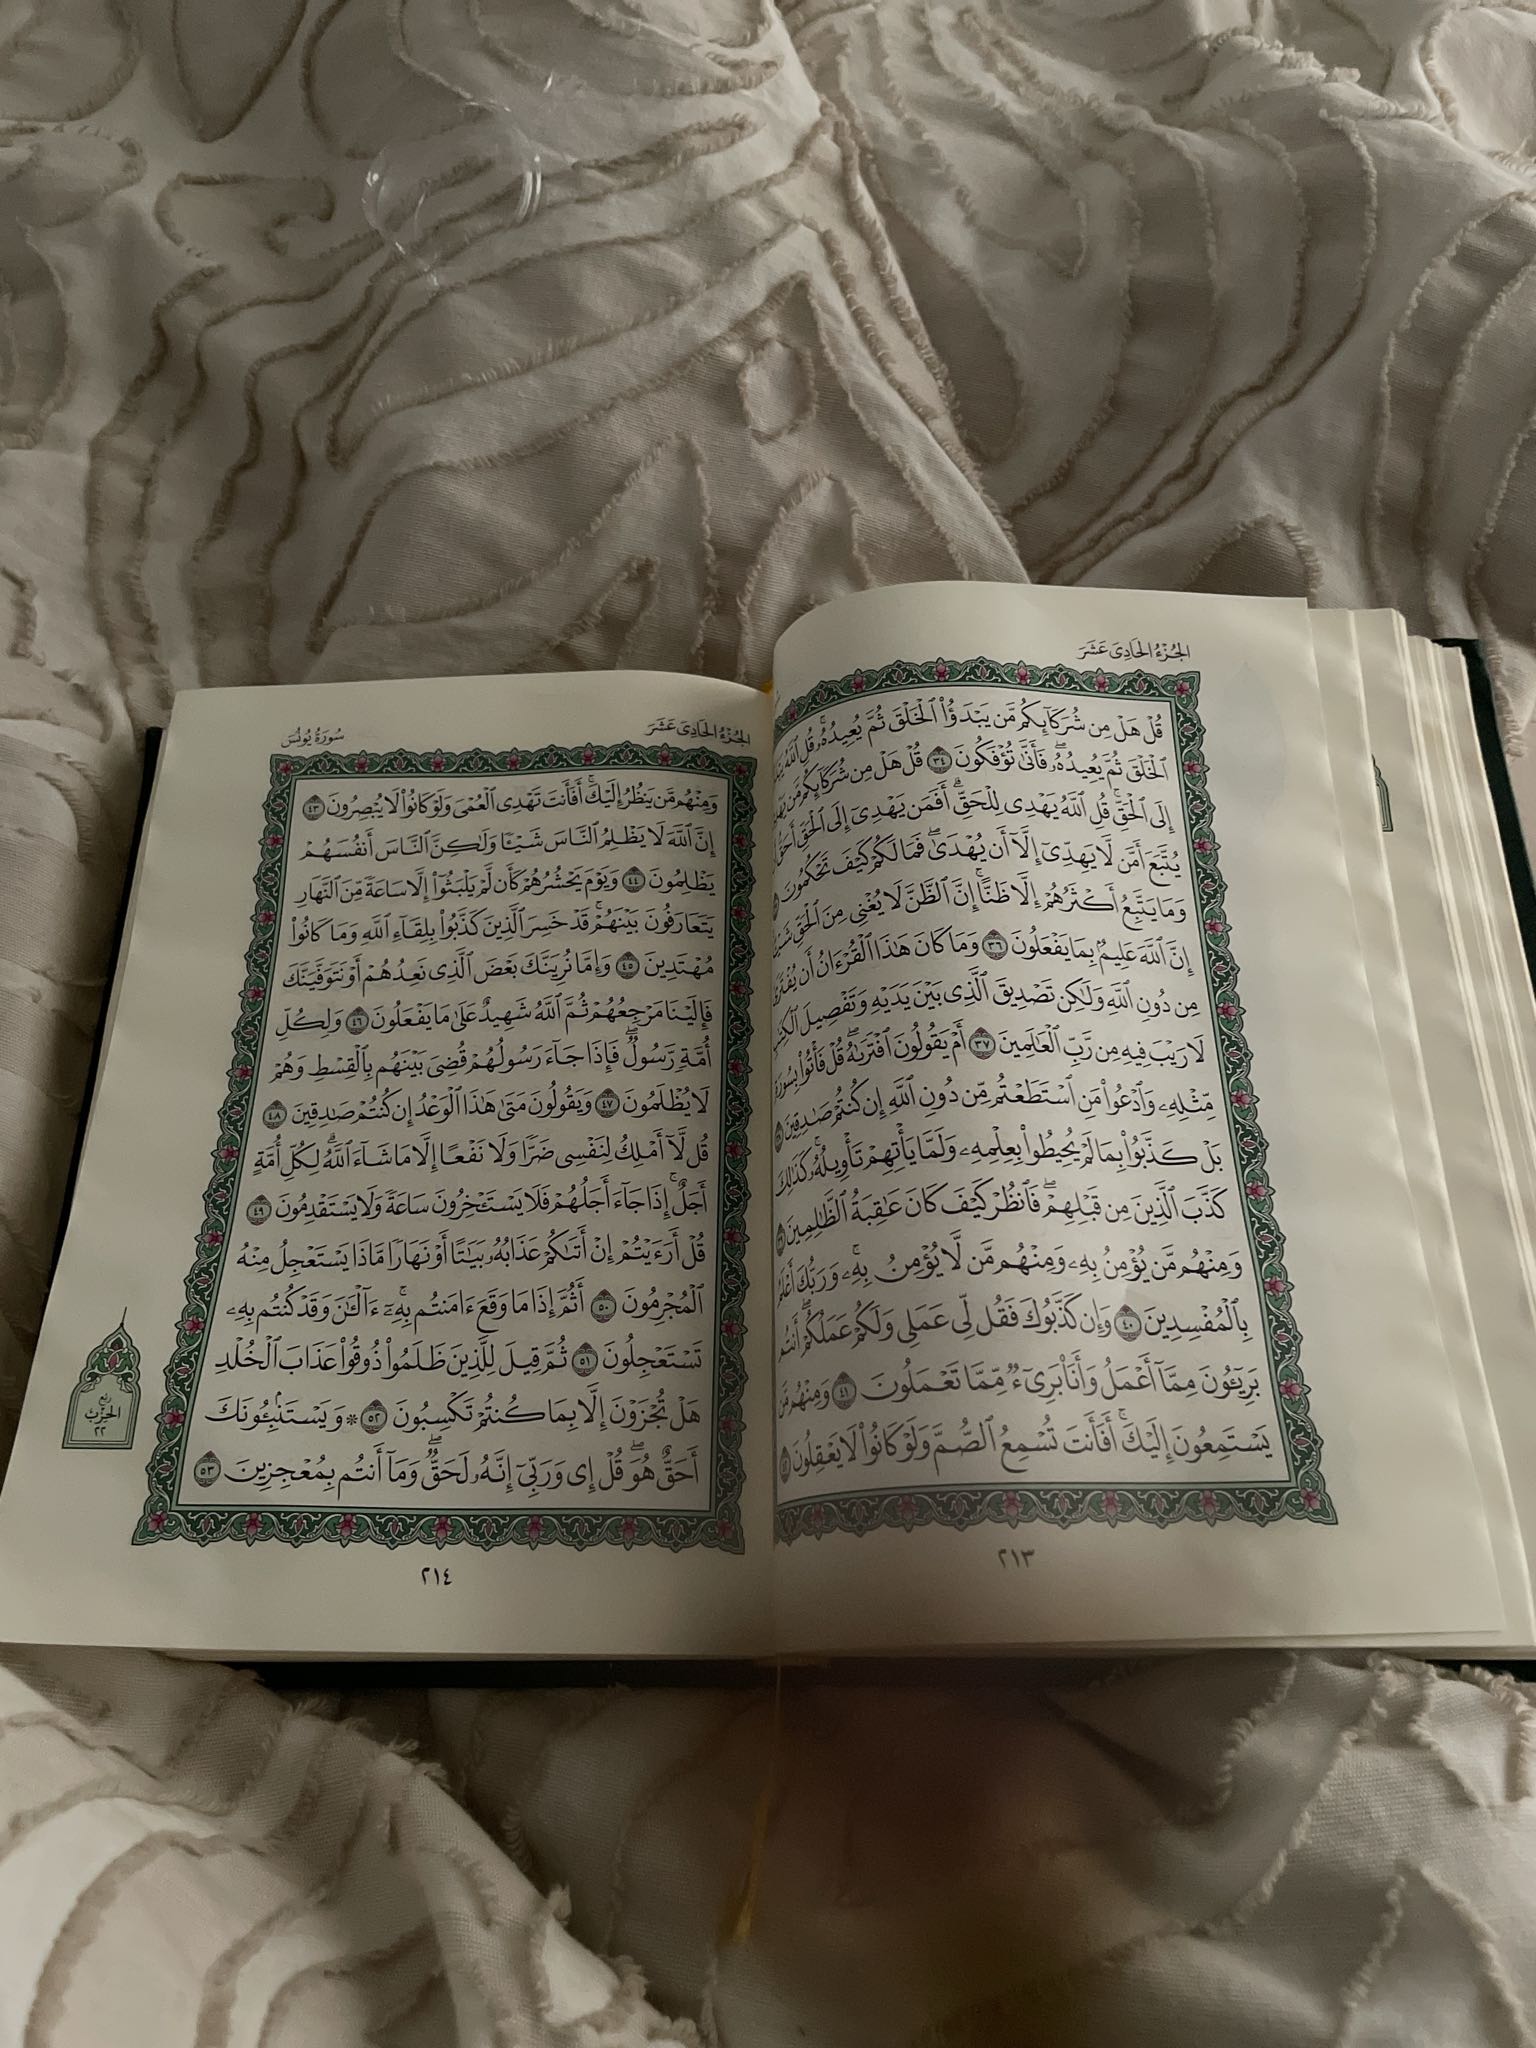 الجزء الحادي عشر
قُلْ هَلْ مِن شُرَكَآئِكُم مَّن يَبْدَؤُا۟ ٱلْخَلْقَ ثُمَّ يُعِيدُهُۥ ۚ قُلِ ٱللَّهُ
ٱلْخَلْقَ ثُمَّ يُعِيدُهُۥ ۖ فَأَنَّىٰ تُؤْفَكُونَ ٣٤ قُلْ هَلْ مِن شُرَكَآئِكُم مَّن
إِلَى ٱلْحَقِّ ۚ قُلِ ٱللَّهُ يَهْدِى لِلْحَقِّ ۗ أَفَمَن يَهْدِىٓ إِلَى ٱلْحَقِّ
يُتَّبَعَ أَمَّن لَّا يَهِدِّىٓ إِلَّآ أَن يُهْدَىٰ ۖ فَمَا لَكُمْ كَيْفَ تَحْكُمُونَ
وَمَا يَتَّبِعُ أَكْثَرُهُمْ إِلَّا ظَنًّا ۚ إِنَّ ٱلظَّنَّ لَا يُغْنِى مِنَ ٱلْحَقِّ
إِنَّ ٱللَّهَ عَلِيمٌۢ بِمَا يَفْعَلُونَ ٣٦ وَمَا كَانَ هَٰذَا ٱلْقُرْءَانُ أَن
مِن دُونِ ٱللَّهِ وَلَٰكِن تَصْدِيقَ ٱلَّذِى بَيْنَ يَدَيْهِ وَتَفْصِيلَ
لَا رَيْبَ فِيهِ مِن رَّبِّ ٱلْعَٰلَمِينَ ٣٧ أَمْ يَقُولُونَ ٱفْتَرَىٰهُ ۖ قُلْ فَأْتُوا۟
مِّثْلِهِۦ وَٱدْعُوا۟ مَنِ ٱسْتَطَعْتُم مِّن دُونِ ٱللَّهِ إِن كُنتُمْ صَٰدِقِينَ
بَلْ كَذَّبُوا۟ بِمَا لَمْ يُحِيطُوا۟ بِعِلْمِهِۦ وَلَمَّا يَأْتِهِمْ تَأْوِيلُهُۥ ۚ كَذَٰلِكَ
كَذَّبَ ٱلَّذِينَ مِن قَبْلِهِمْ ۖ فَٱنظُرْ كَيْفَ كَانَ عَٰقِبَةُ ٱلظَّٰلِمِينَ
وَمِنْهُم مَّن يُؤْمِنُ بِهِۦ وَمِنْهُم مَّن لَّا يُؤْمِنُ بِهِۦ ۚ وَرَبُّكَ
بِٱلْمُفْسِدِينَ ٤٠ وَإِن كَذَّبُوكَ فَقُل لِّى عَمَلِى وَلَكُمْ عَمَلُكُمْ ۖ أَنتُم
بَرِيٓـُٔونَ مِمَّآ أَعْمَلُ وَأَنَا۠ بَرِىٓءٌ مِّمَّا تَعْمَلُونَ ٤١ وَمِنْهُم مَّن
يَسْتَمِعُونَ إِلَيْكَ ۚ أَفَأَنتَ تُسْمِعُ ٱلصُّمَّ وَلَوْ كَانُوا۟ لَا يَعْقِلُونَ
٢١٣
الجزء الحادي عشر سورة يونس
وَمِنْهُم مَّن يَنظُرُ إِلَيْكَ ۚ أَفَأَنتَ تَهْدِى ٱلْعُمْىَ وَلَوْ كَانُوا۟ لَا يُبْصِرُونَ ٤٣
إِنَّ ٱللَّهَ لَا يَظْلِمُ ٱلنَّاسَ شَيْـًٔا وَلَٰكِنَّ ٱلنَّاسَ أَنفُسَهُمْ
يَظْلِمُونَ ٤٤ وَيَوْمَ يَحْشُرُهُمْ كَأَن لَّمْ يَلْبَثُوٓا۟ إِلَّا سَاعَةً مِّنَ ٱلنَّهَارِ
يَتَعَارَفُونَ بَيْنَهُمْ ۚ قَدْ خَسِرَ ٱلَّذِينَ كَذَّبُوا۟ بِلِقَآءِ ٱللَّهِ وَمَا كَانُوا۟
مُهْتَدِينَ ٤٥ وَإِمَّا نُرِيَنَّكَ بَعْضَ ٱلَّذِى نَعِدُهُمْ أَوْ نَتَوَفَّيَنَّكَ
فَإِلَيْنَا مَرْجِعُهُمْ ثُمَّ ٱللَّهُ شَهِيدٌ عَلَىٰ مَا يَفْعَلُونَ ٤٦ وَلِكُلِّ
أُمَّةٍ رَّسُولٌ ۖ فَإِذَا جَآءَ رَسُولُهُمْ قُضِىَ بَيْنَهُم بِٱلْقِسْطِ وَهُمْ
لَا يُظْلَمُونَ ٤٧ وَيَقُولُونَ مَتَىٰ هَٰذَا ٱلْوَعْدُ إِن كُنتُمْ صَٰدِقِينَ ٤٨
قُل لَّآ أَمْلِكُ لِنَفْسِى ضَرًّا وَلَا نَفْعًا إِلَّا مَا شَآءَ ٱللَّهُ ۗ لِكُلِّ أُمَّةٍ
أَجَلٌ ۚ إِذَا جَآءَ أَجَلُهُمْ فَلَا يَسْتَـْٔخِرُونَ سَاعَةً ۖ وَلَا يَسْتَقْدِمُونَ ٤٩
قُلْ أَرَءَيْتُمْ إِنْ أَتَىٰكُمْ عَذَابُهُۥ بَيَٰتًا أَوْ نَهَارًا مَّاذَا يَسْتَعْجِلُ مِنْهُ
ٱلْمُجْرِمُونَ ٥٠ أَثُمَّ إِذَا مَا وَقَعَ ءَامَنتُم بِهِۦٓ ۚ ءَآلْـَٰٔنَ وَقَدْ كُنتُم بِهِۦ
تَسْتَعْجِلُونَ ٥١ ثُمَّ قِيلَ لِلَّذِينَ ظَلَمُوا۟ ذُوقُوا۟ عَذَابَ ٱلْخُلْدِ
هَلْ تُجْزَوْنَ إِلَّا بِمَا كُنتُمْ تَكْسِبُونَ ٥٢ ۞ وَيَسْتَنۢبِـُٔونَكَ
أَحَقٌّ هُوَ ۖ قُلْ إِى وَرَبِّىٓ إِنَّهُۥ لَحَقٌّ ۖ وَمَآ أَنتُم بِمُعْجِزِينَ ٥٣
ربع
الحزب
٢٢
٢١٤